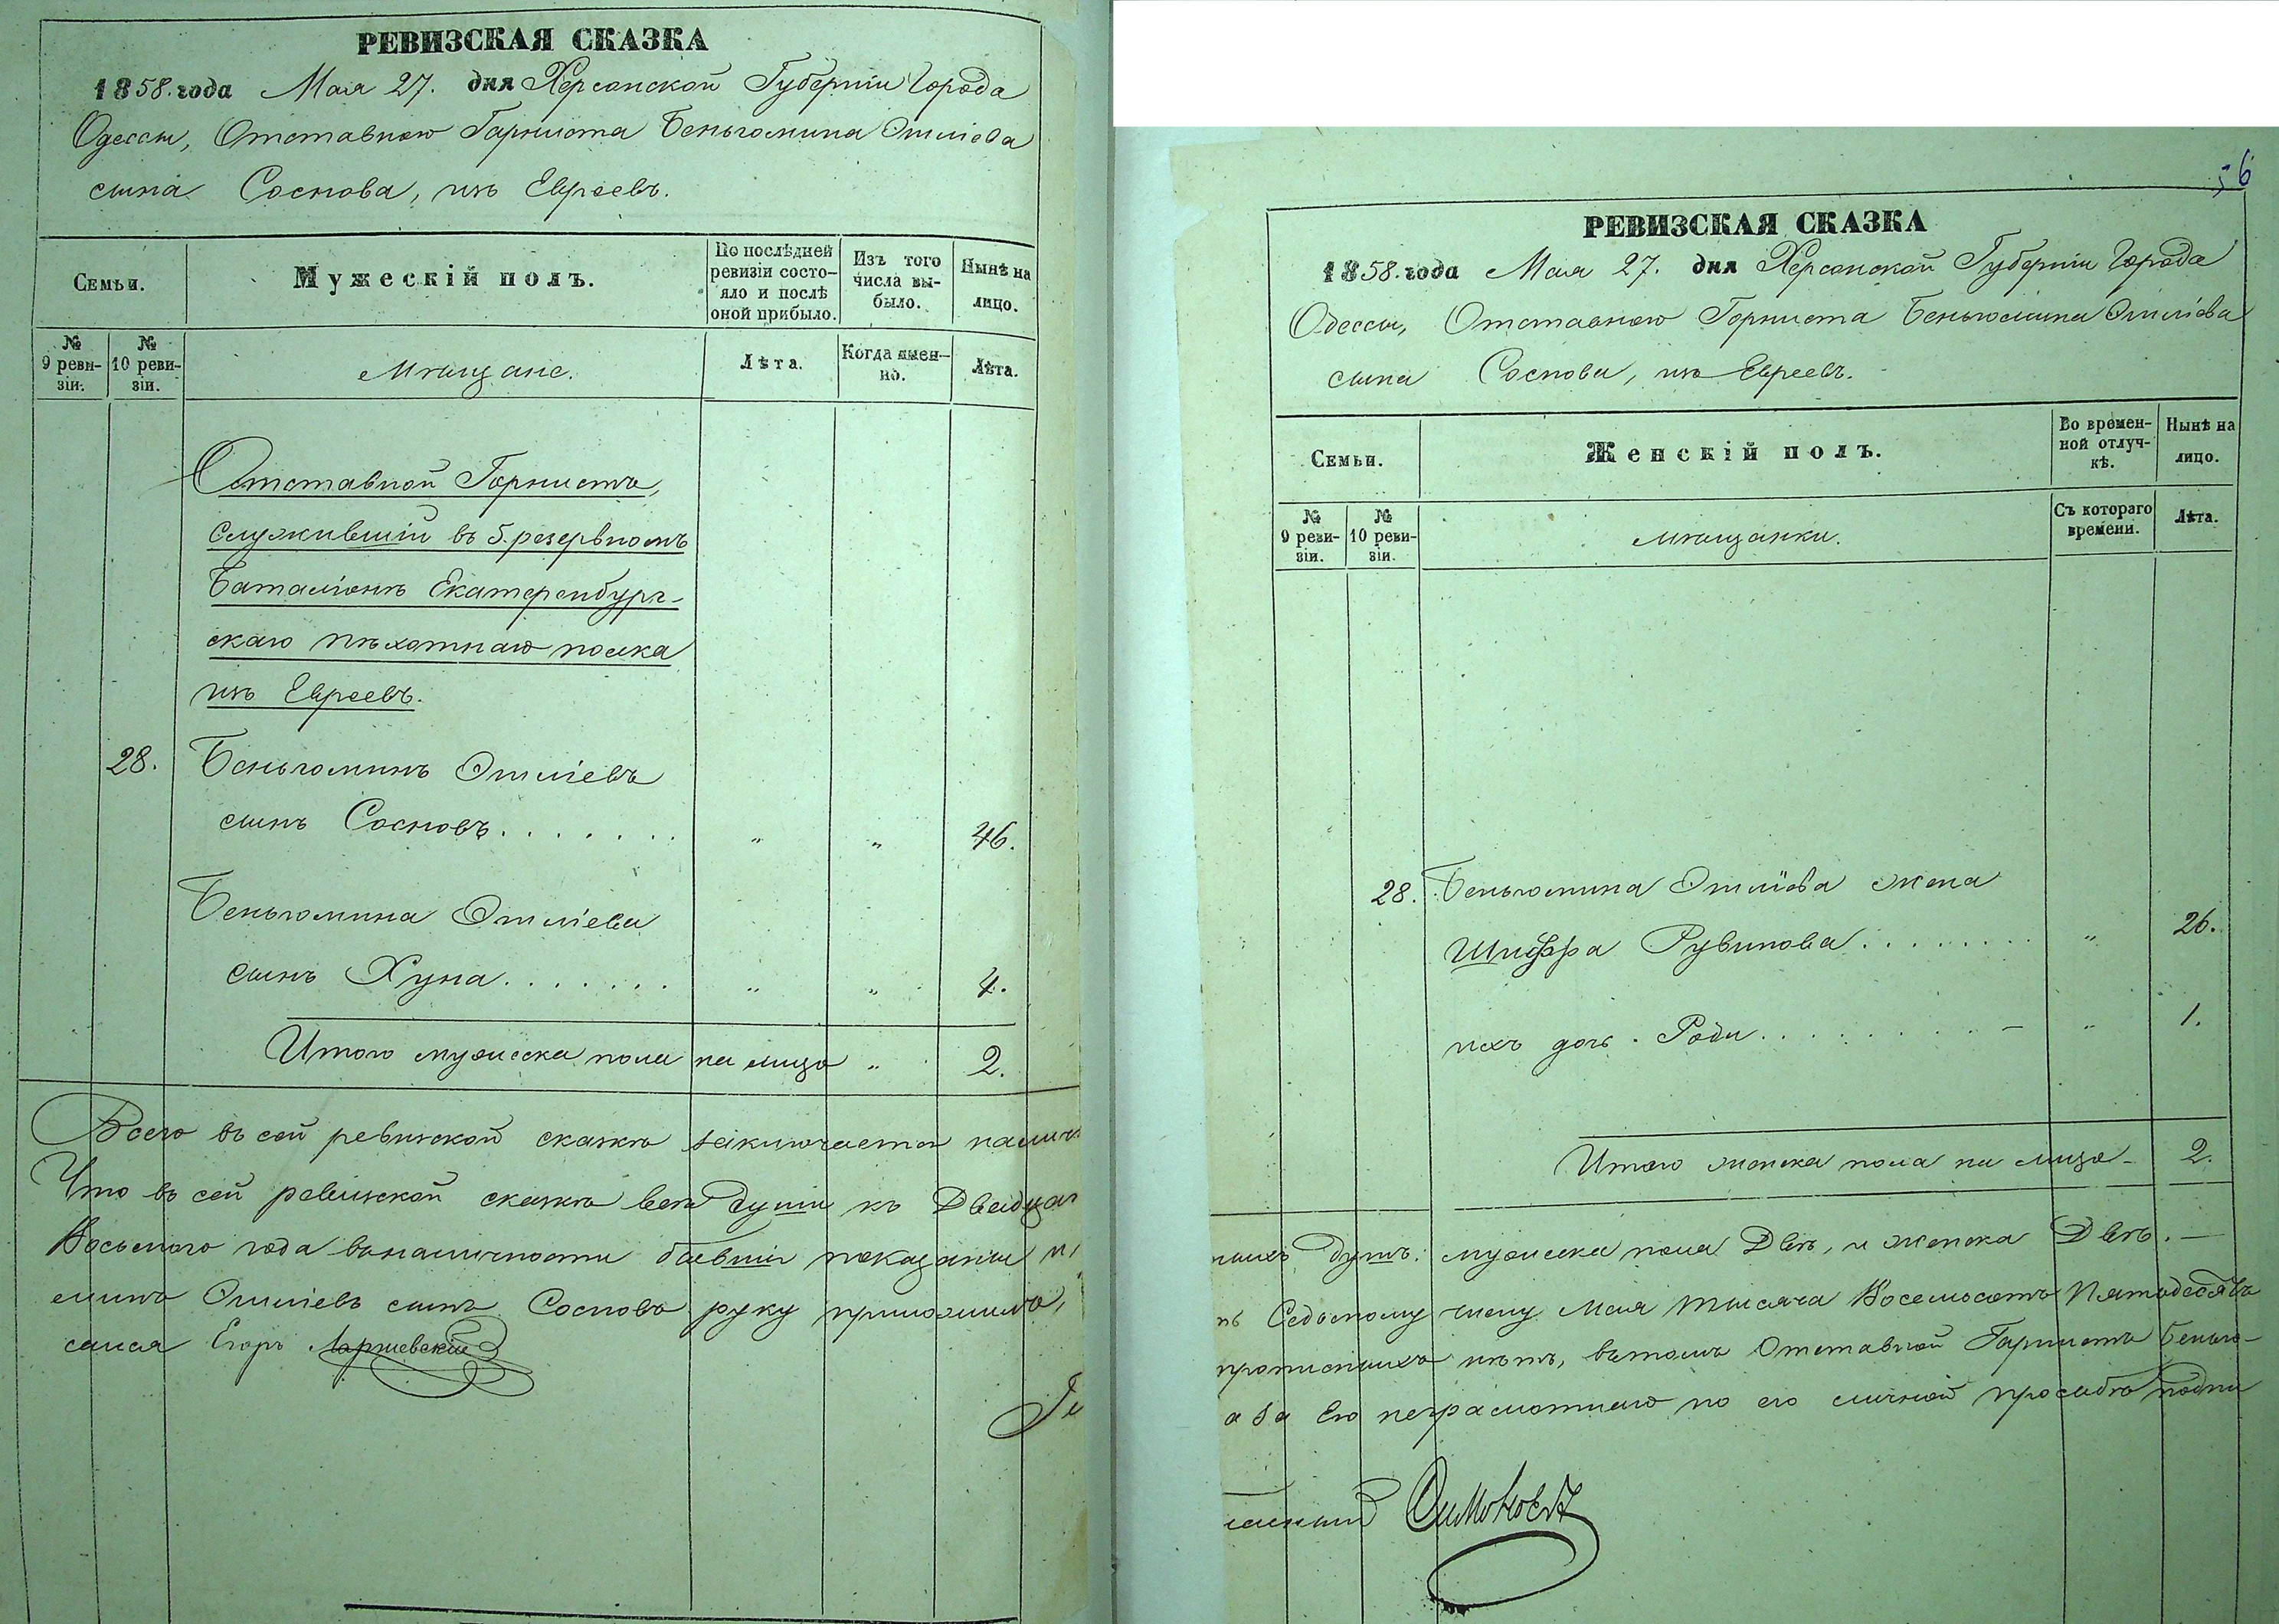 РЕВИЗСКАЯ СКАЗКА
1858. года Мая 27. дня Херсонской Губерніи Города
Одессы, Отставного Горниста Беньюмина Ошліева
сына Соснова, изъ Евреевъ.
Семьи.
Мужескій полъ.
По послѣдней ревизіи состо-
яло и послѣ
оной прибыло.
Изъ того
числа вы-
было.
Нынѣ на
лицо.
№
9 реви-
зіи.
№
10 реви-
зіи.
Мѣщане.
Лѣта.
Когда имен-
но.
Лѣта.
Отставной Горнистъ,
служившій въ 5. резервномъ
Баталіонѣ Екатеренбург-
скаго пѣхотнаго полка
изъ Евреевъ.
28. Беньюминъ Ошліевъ
сынъ Сосновъ....... " " 46.
Беньюмина Ошліева
сынъ Хуна....... " " 4.
Итого мужеска пола на лицо " 2.
Всего въ сей ревизской сказкѣ заключается налич
Что въ сей ревизской сказкѣ всѣ души къ Двадцат
Восьмого года вналичности бывшіи показаны и
минъ Ошліевъ сынъ Сосновъ руку приложилъ,
сался Егоръ
РЕВИЗСКАЯ СКАЗКА
56
1858. года Мая 27. дня Херсонской Губерніи Города
Одессы, Отставного Горниста Беньюмина Ошліева
сына Соснова, изъ Евреевъ.
Семьи.
Женскій полъ.
Во времен-
ной отлуч-
кѣ.
Нынѣ на
лицо.
№
9 реви-
зіи.
№
10 реви-
зіи.
Мѣщанки.
Съ котораго
времени.
Лѣта.
28. Беньюмина Ошліева жена
Шифра Рувинова........ " 26.
ихъ дочь. Роди.......... " 1.
Итого женска пола на лицо - 2.
ныхъ душъ: мужеска пола Двѣ, и женска Двѣ. —
ь Седьмому числу Мая тысяча Восемьсотъ Пятьдесятъ
прописныхъ нѣтъ, вътомъ Отставной Горнистъ Бенью-
а за Его неграмотнаго по его личной просьбѣ подпи
Симоновъ